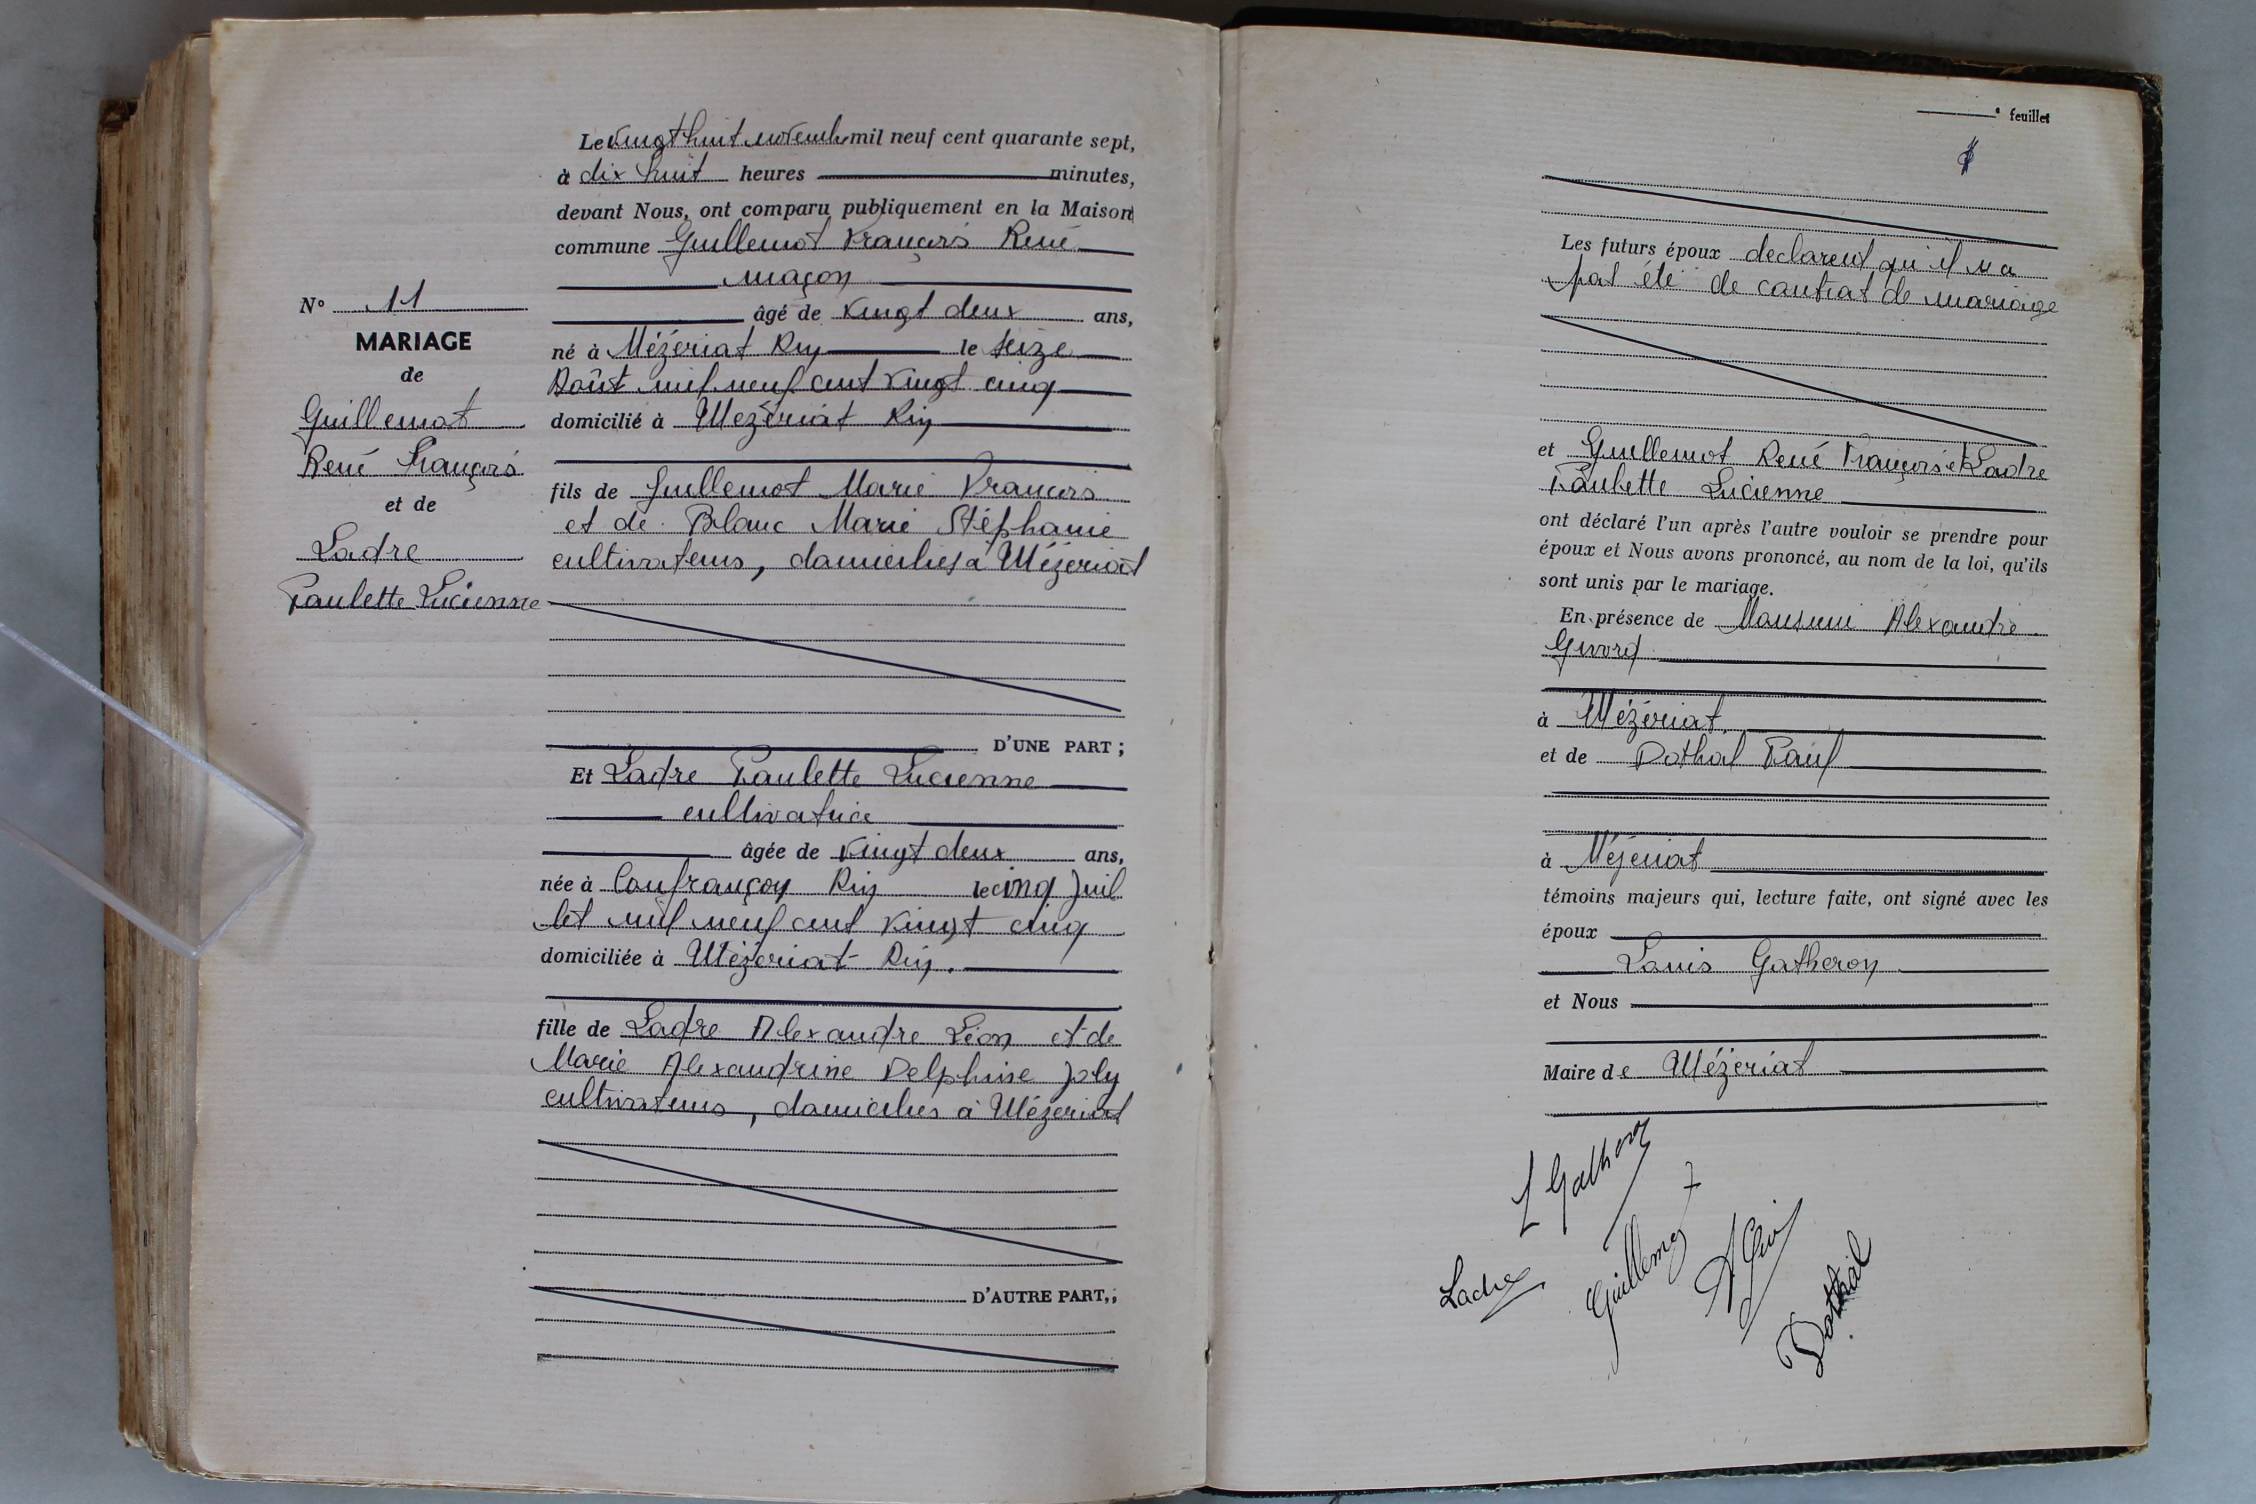 N° 11
MARIAGE
de
Guillemot
René François
et de
Ladre
Paulette Lucienne
Le vingt huit novembre mil neuf cent quarante sept,
à dix huit heures minutes,
devant Nous, ont comparu publiquement en la Maison
commune Guillemot François René
maçon
âgé de vingt deux ans,
né à Mézériat Ain le seize
Août mil neuf cent vingt cinq
domicilié à Mézériat Ain
fils de Guillemot Marie François
et de Blanc Marie Stéphanie
cultivateurs, domiciliés à Mézériat
D'UNE PART ;
Et Ladre Paulette Lucienne
cultivatrice
âgée de vingt deux ans,
née à Confrançon Ain le cinq Juil
let mil neuf cent vingt cinq
domiciliée à Mézériat Ain.
fille de Ladre Alexandre Léon et de
Marie Alexandrine Delphine Joly
cultivateurs, domiciliés à Mézériat
D'AUTRE PART,;
e feuillet
Les futurs époux declarent qu'il n'a
pas été de contrat de mariage
et Guillemot René François et Ladre
Paulette Lucienne
ont déclaré l'un après l'autre vouloir se prendre pour
époux et Nous avons prononcé, au nom de la loi, qu'ils
sont unis par le mariage.
En présence de Alexandre
à Mézériat
et de Dothal Paul
à Mézériat
témoins majeurs qui, lecture faite, ont signé avec les
époux
Louis Gatheron
et Nous
Maire de Mézériat
L Gatheron
Ladre
Guillemot
Dothal